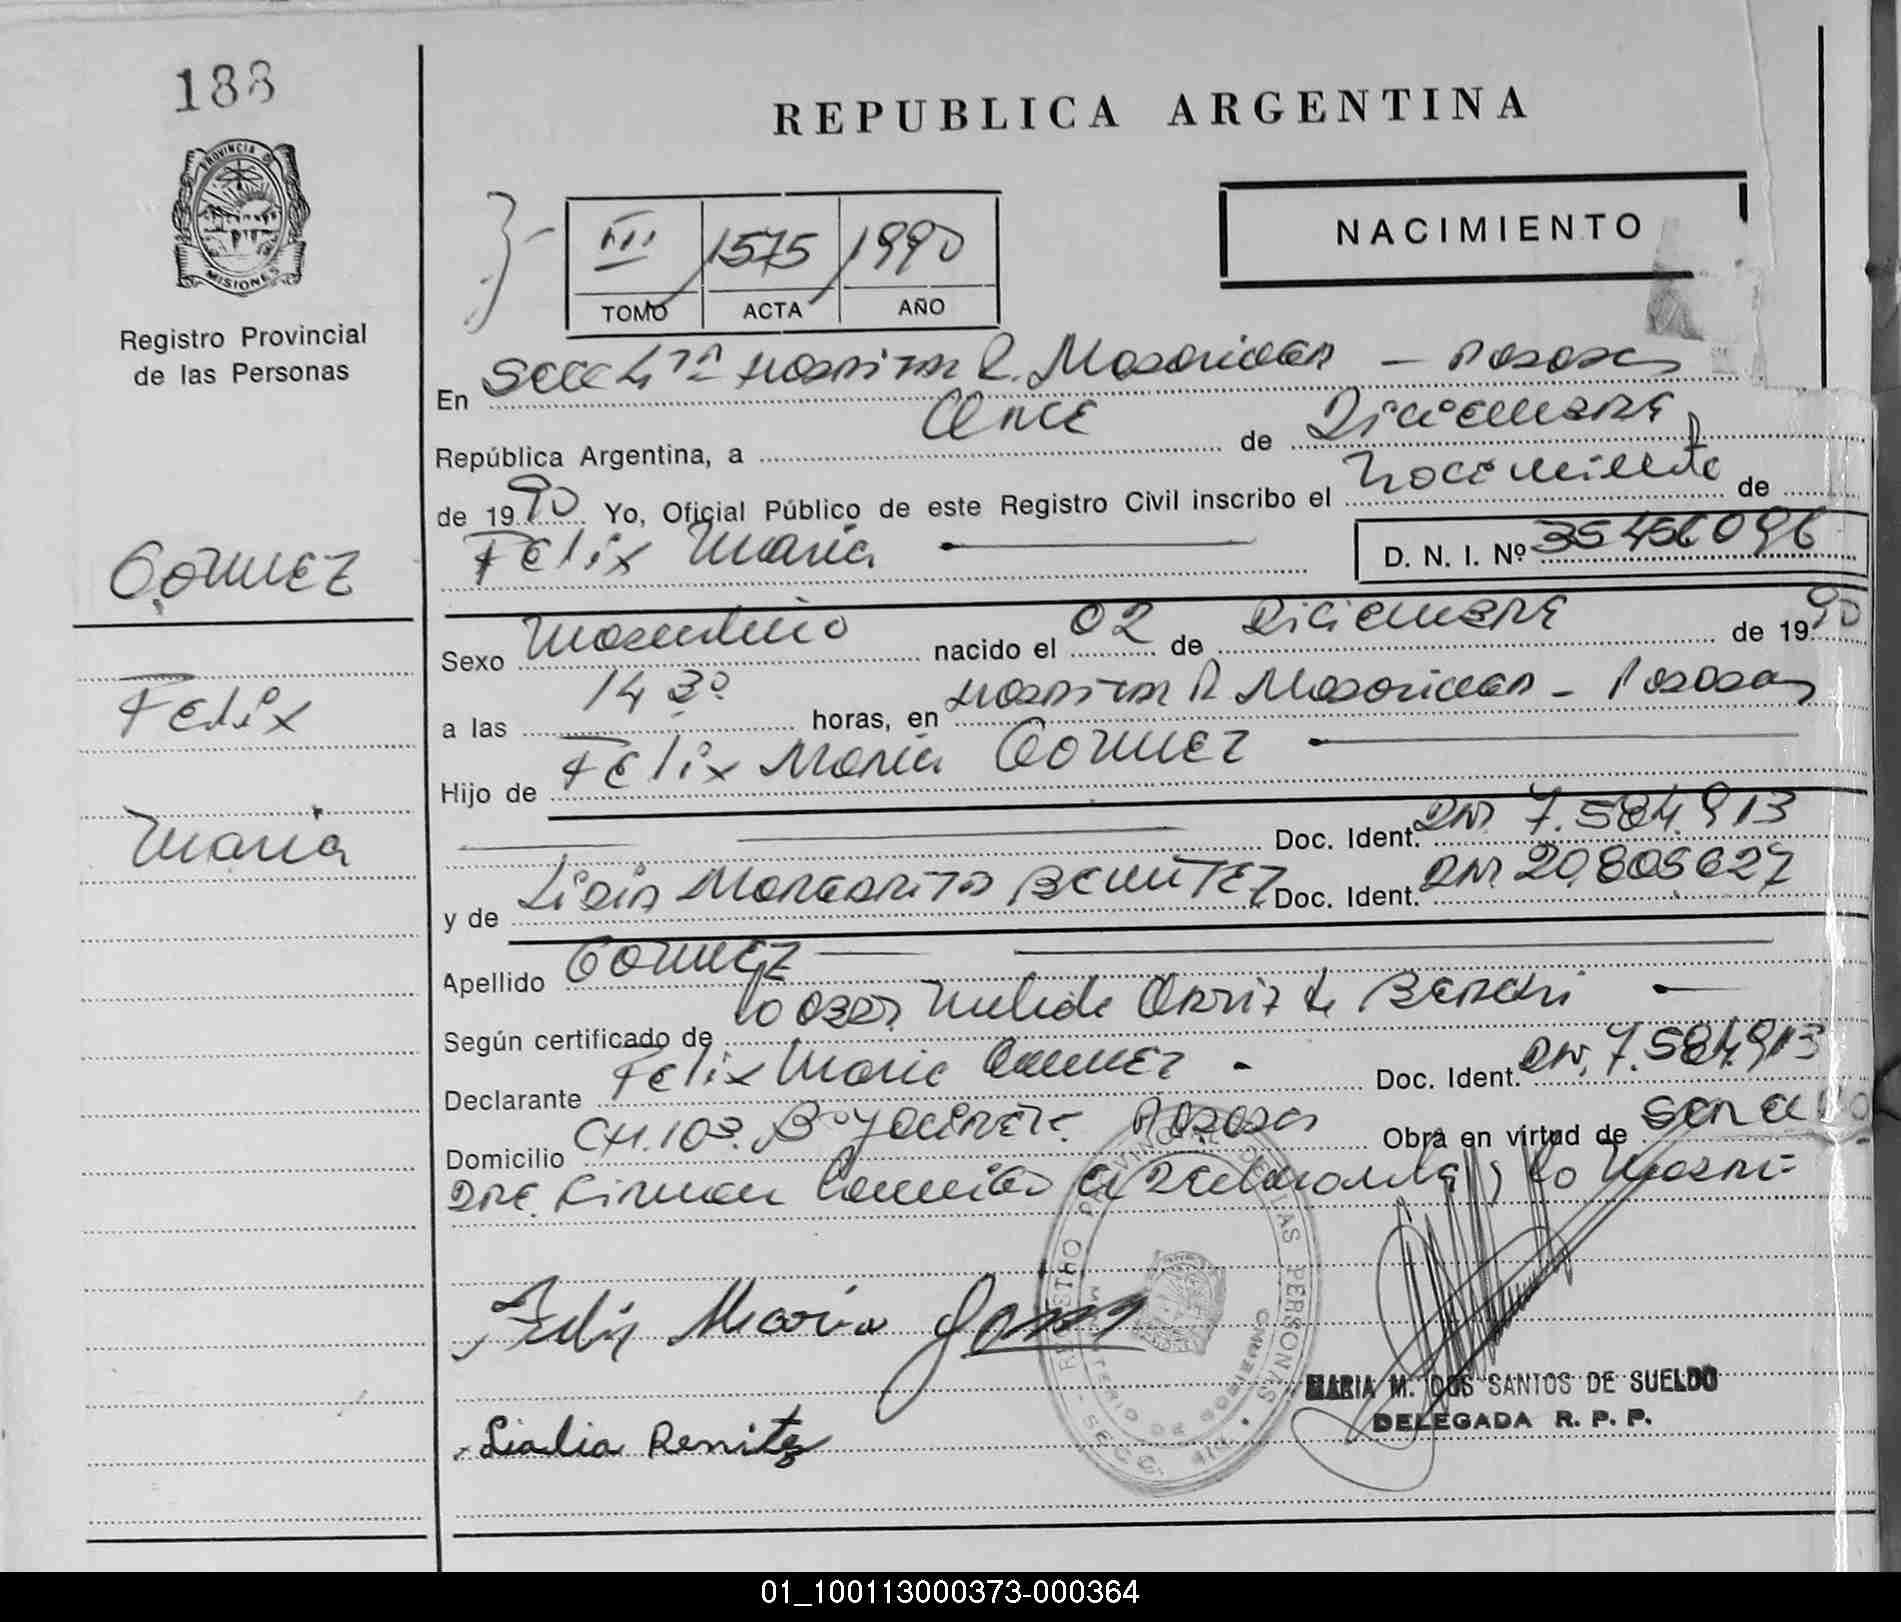 188
REPUBLICA ARGENTINA
PROVINCIA DE
MISIONES
Registro Provincial
de las Personas
III 1575 1990
TOMO ACTA AÑO
NACIMIENTO
En Secc 4ta Hospital R. Madariaga - Posadas
República Argentina, a Once de Diciembre
de 1990 Yo, Oficial Público de este Registro Civil inscribo el nacimiento de
Felix Maria D. N. I. Nº 35456096
Gomez
Sexo Masculino nacido el 02 de Diciembre de 1990
Felix
a las 14 30 horas, en Hospital R Madariaga - Posadas
Hijo de Felix Maria Gomez
Maria
Doc. Ident. DNI 7.584.913
y de Lidia Margarita BENITEZ Doc. Ident. DNI 20.805627
Apellido GOMEZ
Según certificado de Nelida Ortiz de
Declarante Felix Maria Gomez - Doc. Ident. DNI. 7.584.913
Domicilio CH. 103. Posadas Obra en virtud de ser el
Firman el Declarante y la Madre
Felix Maria Gomez
REGISTRO PROVINCIAL DE LAS PERSONAS
MINISTERIO DE GOBIERNO
SECC. 4ta
MARIA M. DOS SANTOS DE SUELDO
DELEGADA R. P. P.
Lidia Benitez
01_100113000373-000364